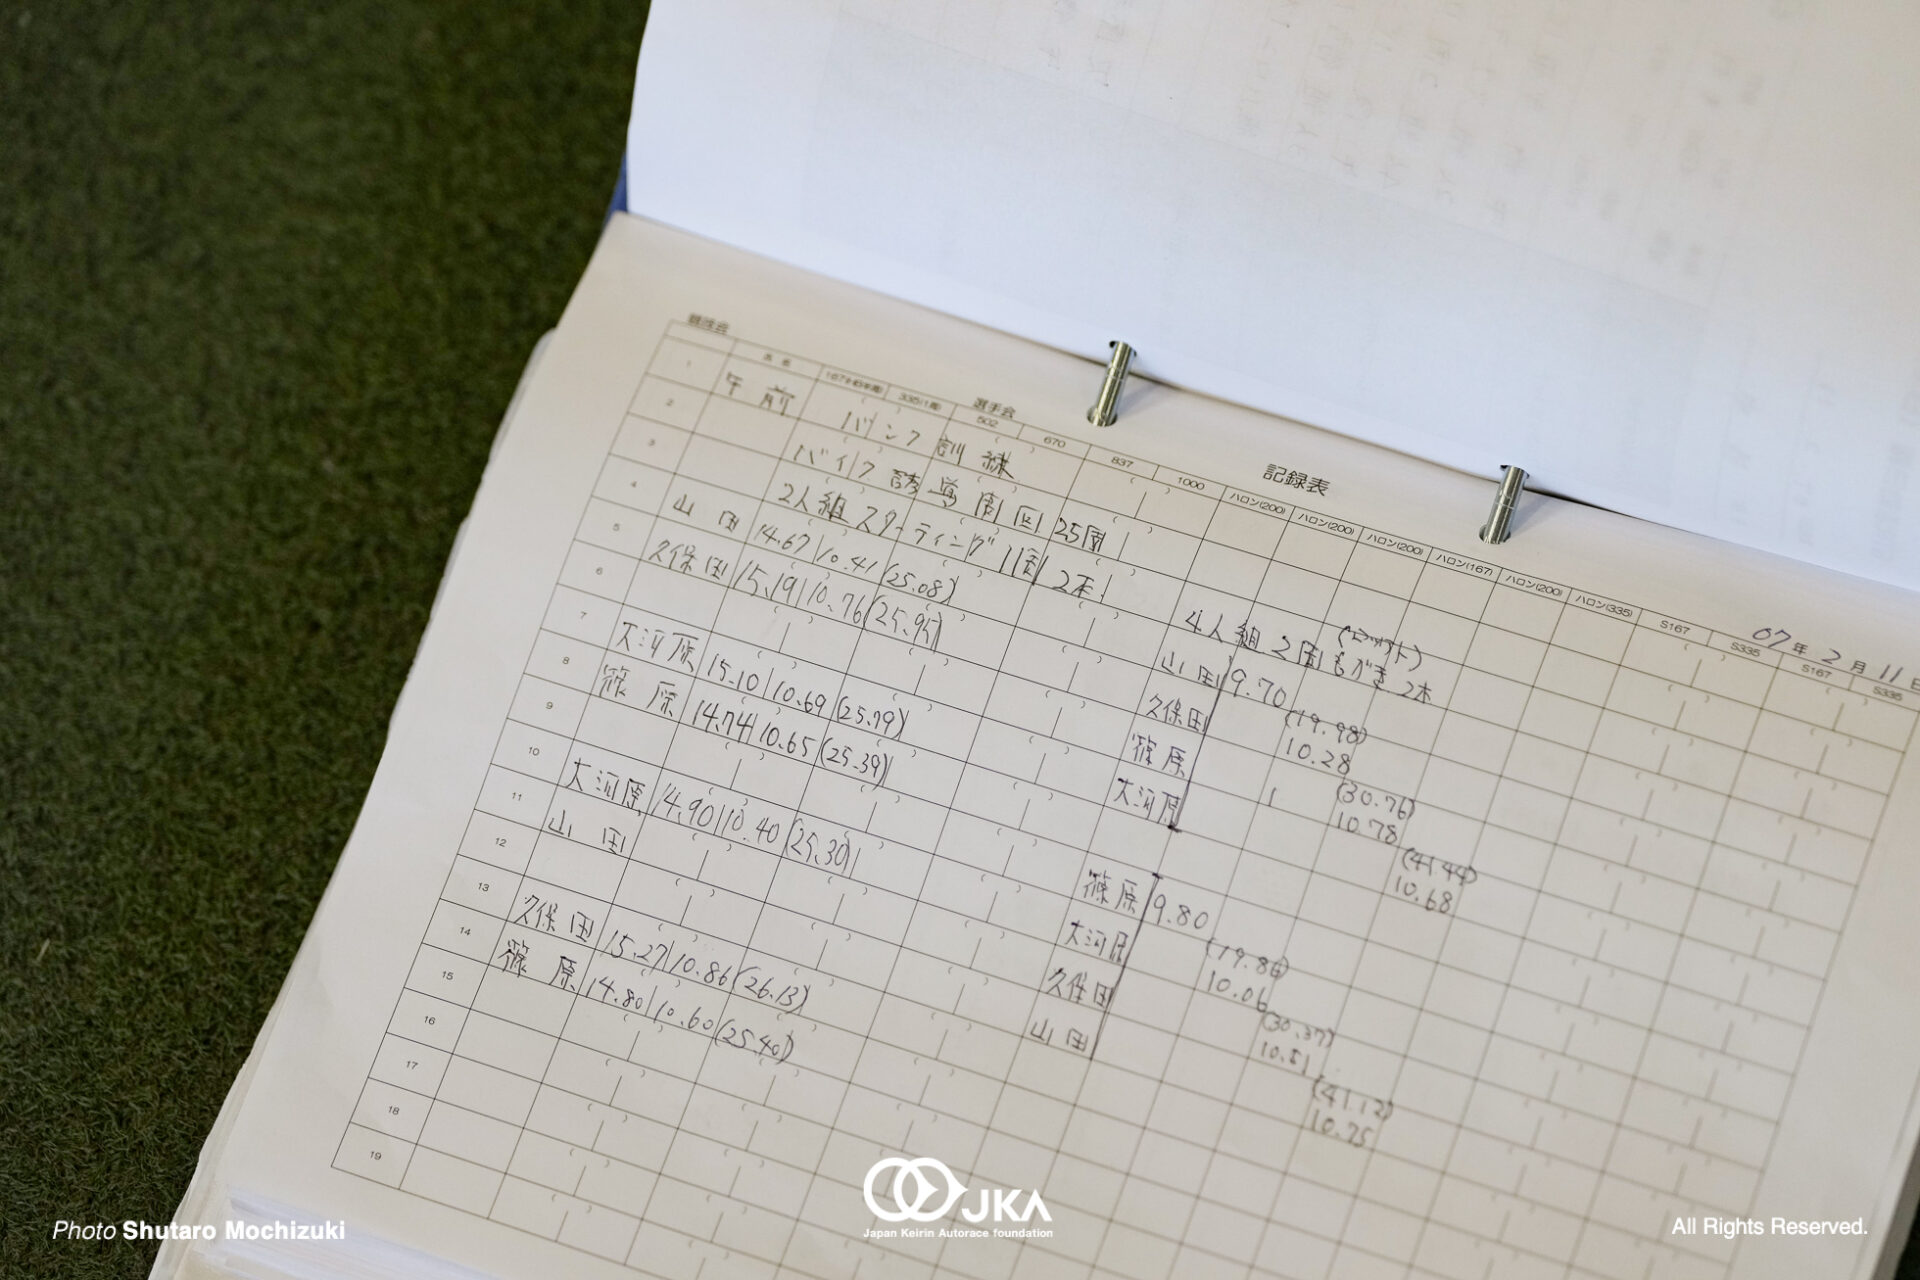 競技会
選手会
記録表
07年2月11日
氏名 167(HB半周) 335(1周) 502 670 837 1000 ハロン(200) ハロン(200) ハロン(200) ハロン(167) ハロン(200) ハロン(335) S167 S335 S167 S335
1 午前 バンク訓練
2 バイク誘導周回 25周
3 2人組スターティング 1周 2本
4 山田 14.67 10.41 (25.08)
5 久保田 15.19 10.76 (25.95)
6
7 大河原 15.10 10.69 (25.79)
8 篠原 14.74 10.65 (25.39)
9
10 大河原 14.90 10.40 (25.30)
11 山田
12
13 久保田 15.27 10.86 (26.13)
14 篠原 14.80 10.60 (25.40)
15
16
17
18
19
4人組 2周もがき 2本
山田 9.70
久保田 (19.98)
10.28
篠原
大河原 (30.76)
10.78
(41.44)
10.68
篠原 9.80
大河原 (19.86)
10.06
久保田
山田 (30.37)
10.51
(41.12)
10.75
Photo Shutaro Mochizuki
JKA
Japan Keirin Autorace foundation
All Rights Reserved.